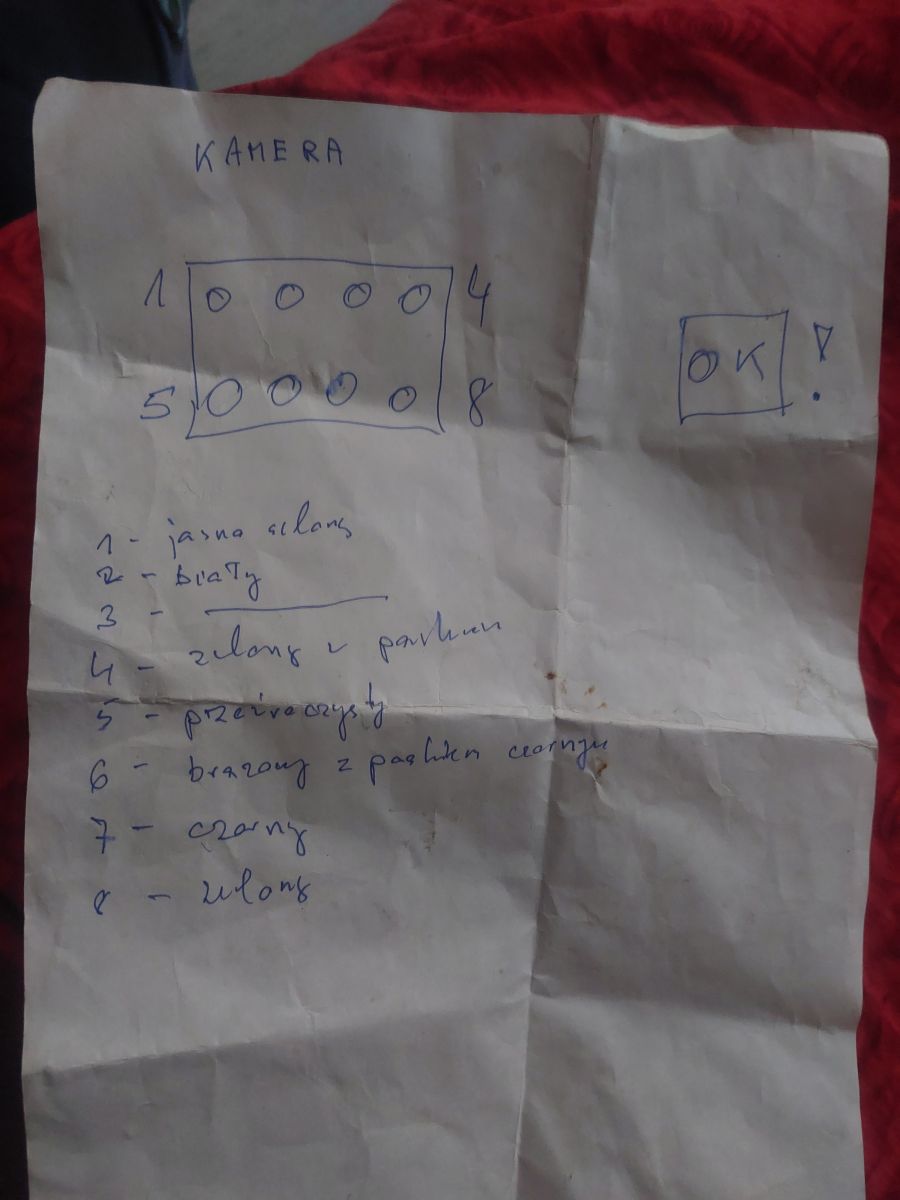 KAMERA
1 4
5 8
OK !
1 - jasno zielony
2 - biały
3 -
4 - zielony z paskiem
5 - przeźroczysty
6 - brązowy z paskiem czarnym
7 - czarny
8 - zielony